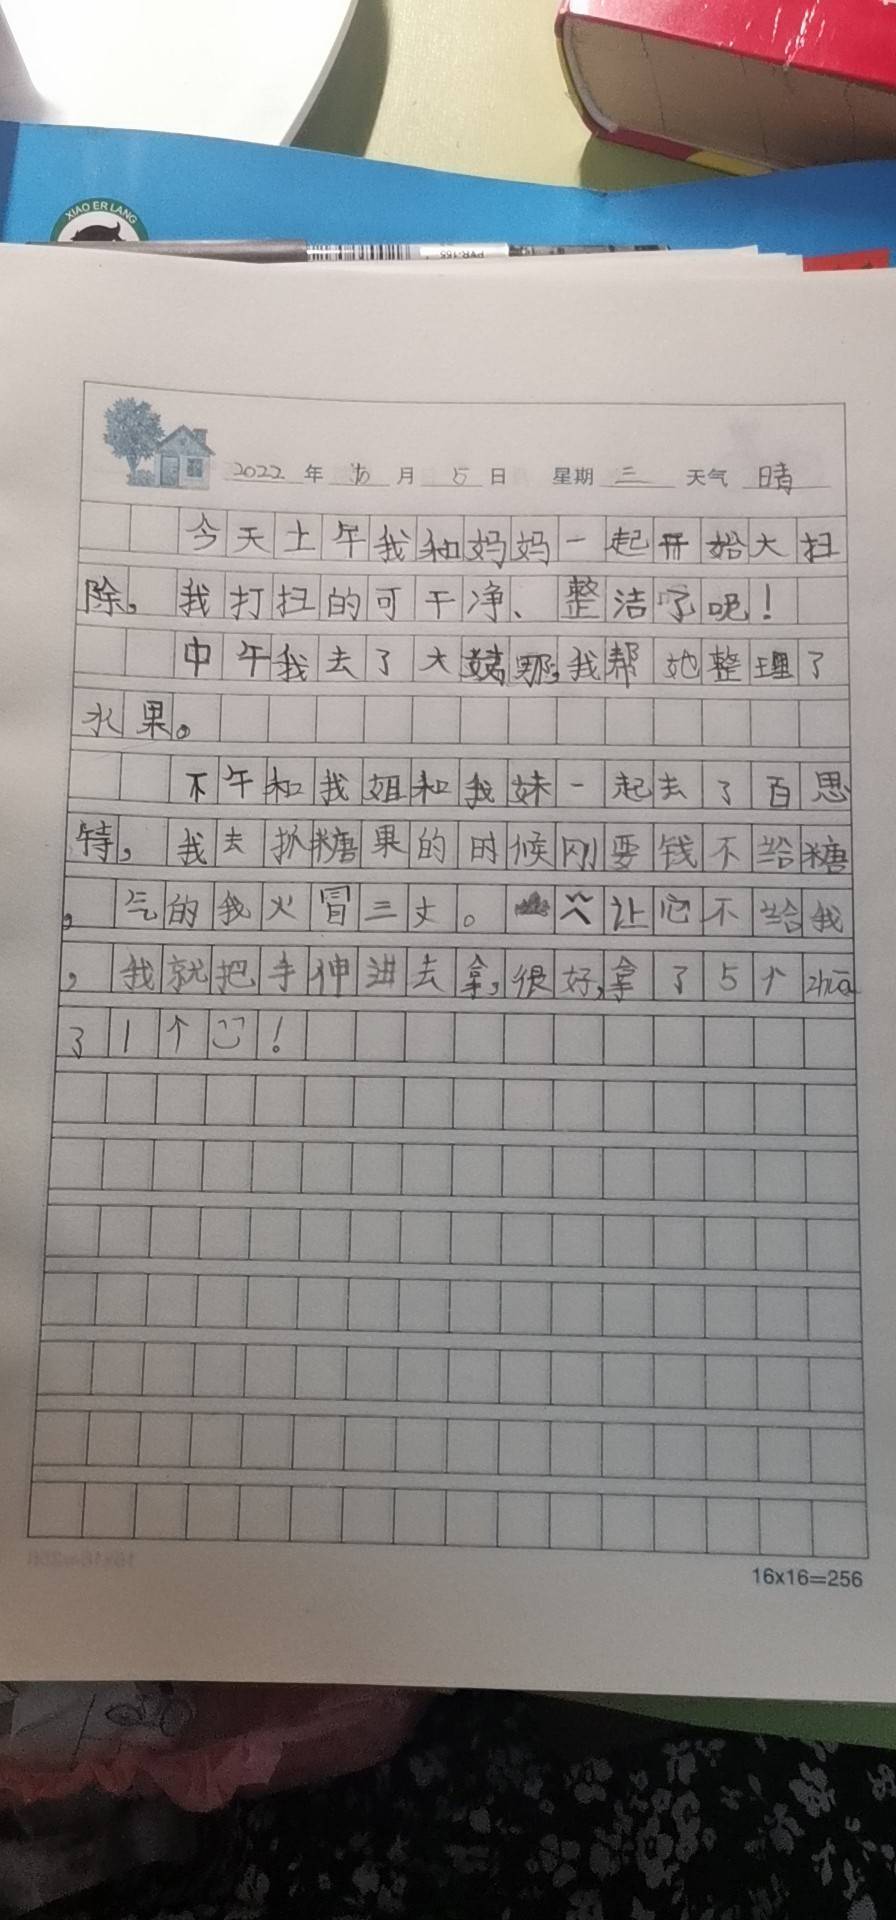 XIAO ER LANG
PVR-155
2022 年 月 5 日 星期 三 天气 晴
今天上午我和妈妈一起开始大扫
除。我打扫的可干净、整洁了呢！
中午我去了大姨那,我帮她整理了
水果。
下午和我姐和我妹一起去了百思
特,我去抓糖果的时候刚要钱不给糖
,气的我火冒三丈。让它不给我
,我就把手伸进去拿,很好,拿了5个
了1个！
16x16=256